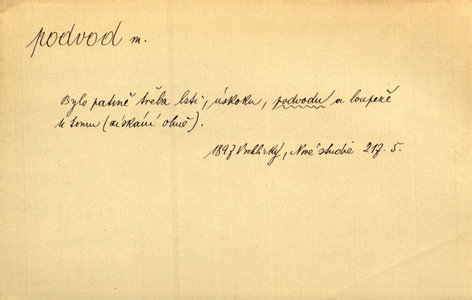 podvod m.
Bylo patrně třeba lsti, úskoku, podvodu a loupeže
k tomu (získání ohně).
1897 Vrchlický, Nové studie 217. 5.